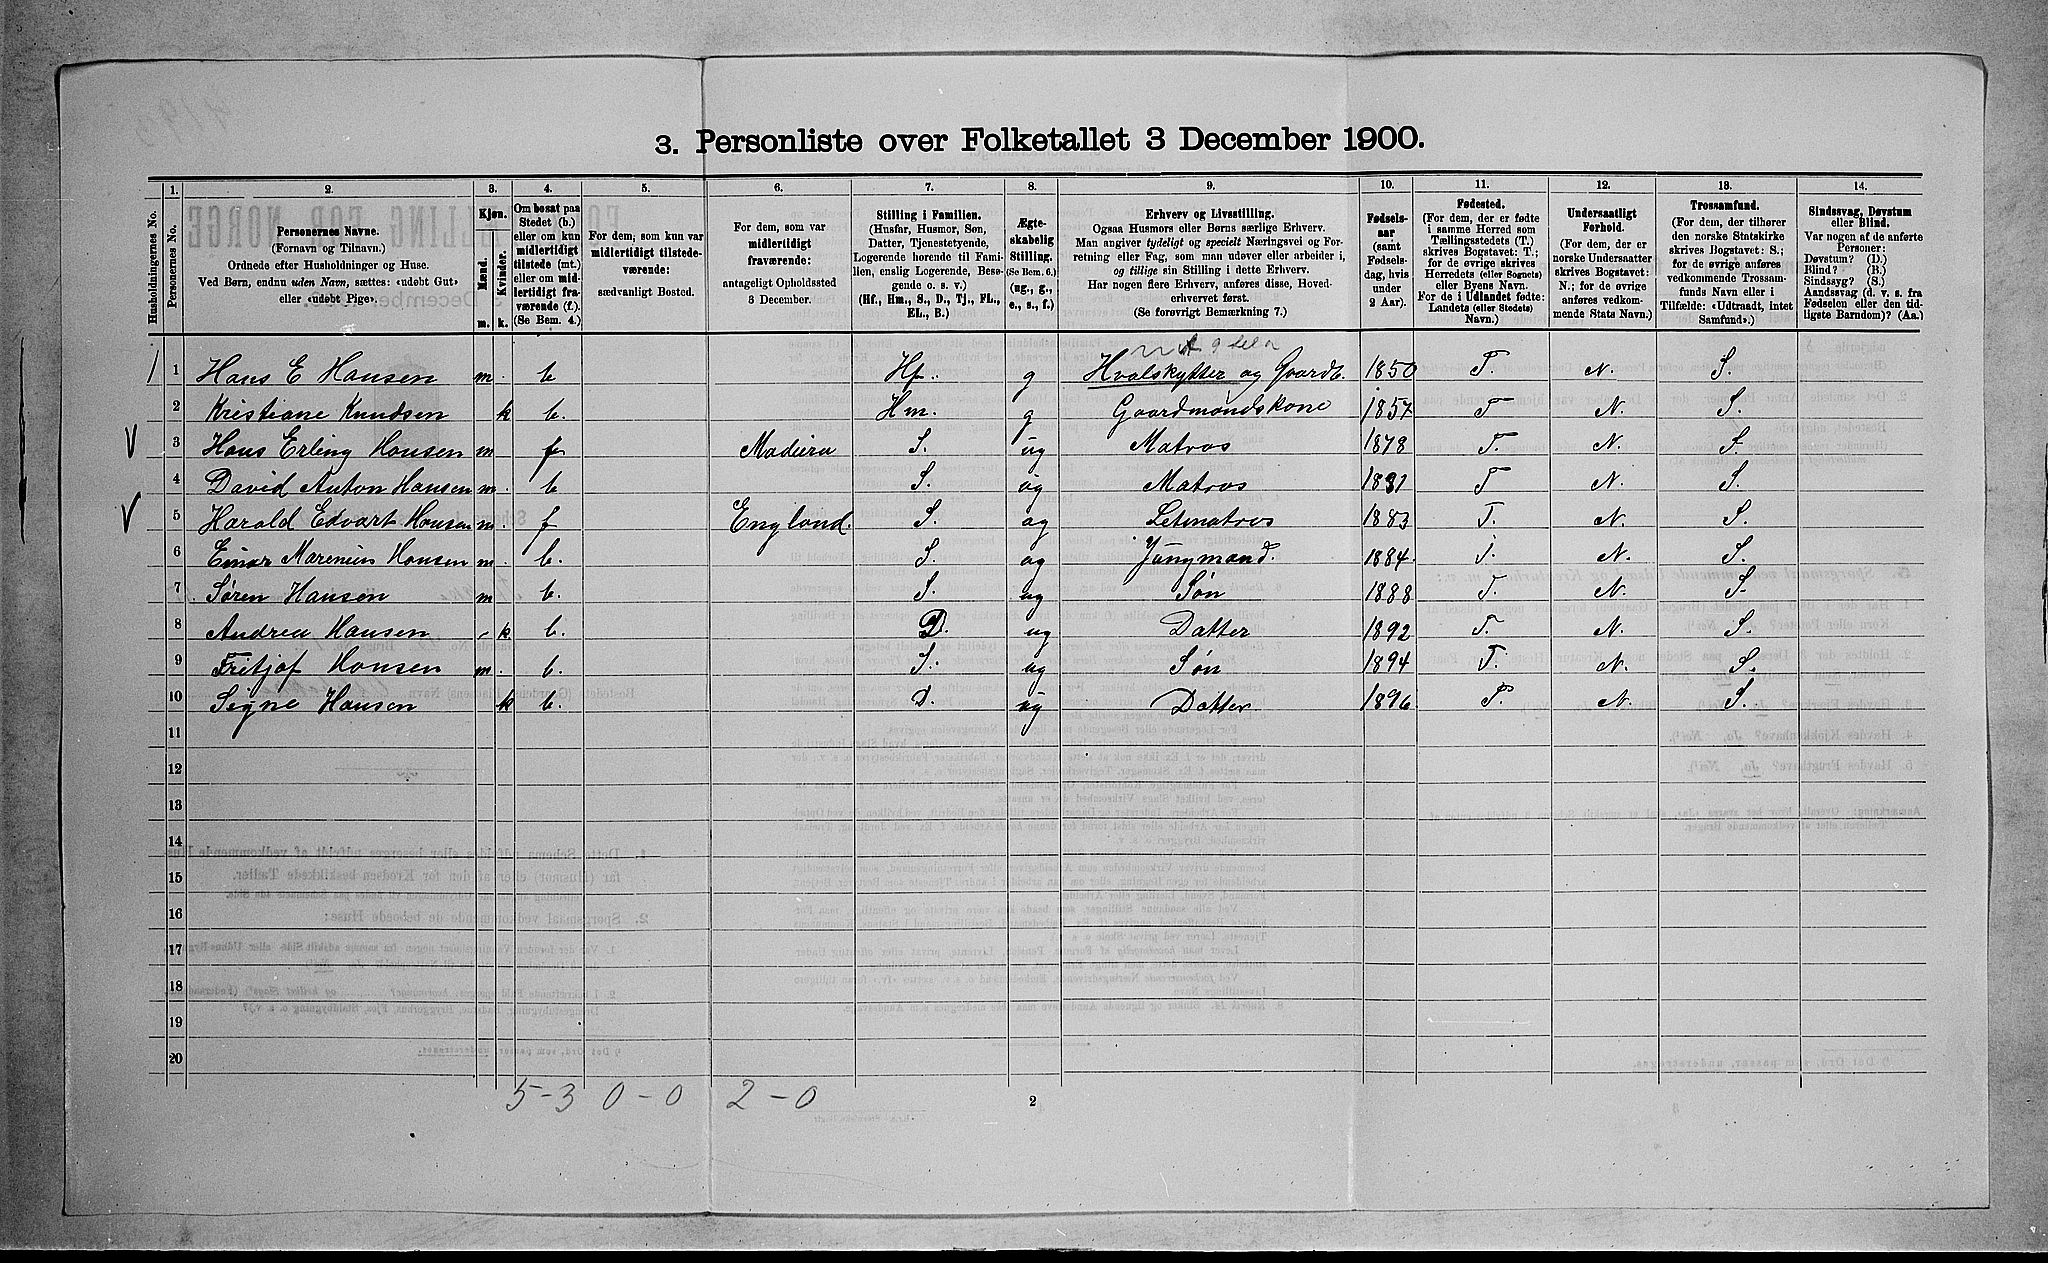 3. Personliste over Folketallet 3 December 1900.
Husholdningernes No.
1.
Personernes No.
2.
Personernes Navne.
(Fornavn og Tilnavn.)
Ordnede efter Husholdninger og Huse.
Ved Børn, endnu uden Navn, sættes: «udøbt Gut»
eller «udøbt Pige».
3.
Kjøn.
Mænd.
Kvinder.
m. k.
4.
Om bosat paa
Stedet (b.)
eller om kun
midlertidigt
tilstede (mt.)
eller om mid-
lertidigt fra-
værende (f.).
(Se Bem. 4.)
5.
For dem, som kun var
midlertidigt tilstede-
værende:
sædvanligt Bosted.
6.
For dem, som var
midlertidigt
fraværende:
antageligt Opholdssted
3 December.
7.
Stilling i Familien.
(Husfar, Husmor, Søn,
Datter, Tjenestetyende,
Logerende hørende til Fami-
lien, enslig Logerende, Besø-
gende o. s. v.)
(Hf., Hm., S., D., Tj., FL.,
EL., B.)
8.
Ægte-
skabelig
Stilling.
(Se Bem. 6.)
(ug., g.,
e., s., f.)
9.
Erhverv og Livsstilling.
Ogsaa Husmors eller Børns særlige Erhverv.
Man angiver tydeligt og specielt Næringsvei og For-
retning eller Fag, som man udøver eller arbeider i,
og tillige sin Stilling i dette Erhverv.
Har nogen flere Erhverv, anføres disse, Hoved-
erhvervet først.
(Se forøvrigt Bemærkning 7.)
10.
Fødsels-
aar
(samt
Fødsels-
dag, hvis
under
2 Aar).
11.
Fødested.
(For dem, der er fødte
i samme Herred som
Tællingsstedets (T.)
skrives Bogstavet: T.;
for de øvrige skrives
Herredets (eller Sognets)
eller Byens Navn.
For de i Udlandet fødte:
Landets (eller Stedets)
Navn.)
12.
Undersaatligt
Forhold.
(For dem, der er
norske Undersaatter
skrives Bogstavet:
N.; for de øvrige
anføres vedkom-
mende Stats Navn.)
13.
Trossamfund.
(For dem, der tilhører
den norske Statskirke
skrives Bogstavet: S.;
for de øvrige anføres
vedkommende Trossam-
funds Navn eller i
Tilfælde: «Udtraadt, intet
Samfund».)
14.
Sindssvag, Døvstum
eller Blind.
Var nogen af de anførte
Personer:
Døvstum? (D.)
Blind? (B.)
Sindssyg? (S.)
Aandssvag (d. v. s. fra
Fødselen eller den tid-
ligste Barndom)? (Aa.)
1 1 Hans E Hansen m. b Hf. g Hvalskytter og Gaardb. 1850 T. N. S.
2 Kristiane Knudsen k b. Hm. g Gaardmandskone 1857 T N. S.
V 3 Hans Erling Hansen m f Madeira S. ug Matros 1878 T. N. S.
4 David Anton Hansen m. b S. ug Matros 1881 T N. S.
V 5 Harald Edvart Hansen m. f England. S. ug Letmatros 1883 T. N. S.
6 Einar Marenius Hansen m. b. S. ug Jungmand. 1884. T. N. S.
7 Søren Hansen m b. S. ug Søn 1888 T. N. S.
8 Andrea Hansen k b. D. ug Datter 1892 T. N. S.
9 Fritjof Hansen m. b. S. ug Søn 1894 T. N. S.
10 Signe Hansen k b. D. ug Datter 1896 T. N. S.
11
12
13
14
15
16
17
18
19
20
5-3 0-0 2-0
2